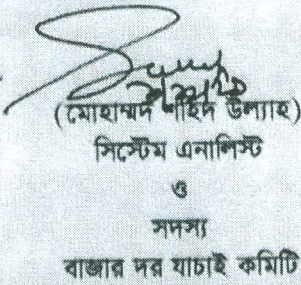 (মোহাম্মদ শহিদ উল্যাহ)
সিস্টেম এনালিস্ট
ও
সদস্য
বাজার দর যাচাই কমিটি